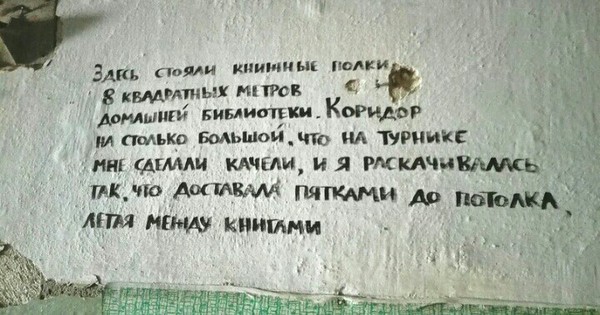 Здесь стояли книжные полки,
8 квадратных метров
домашней библиотеки. Коридор
на столько большой, что на турнике
мне сделали качели, и я раскачивалась
так, что доставала пятками до потолка,
летая между книгами